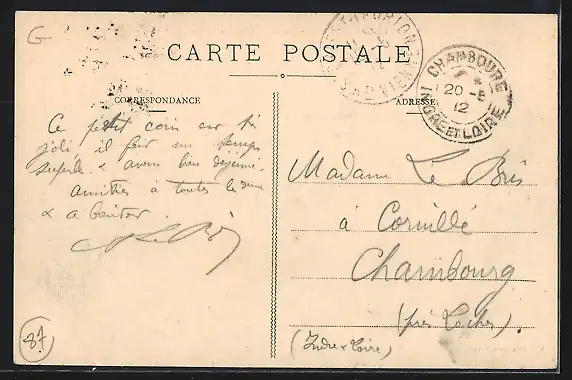 G
CARTE POSTALE
CORRESPONDANCE
ADRESSE
CHAMBOURG
20-5
12
INDRE ET LOIRE
Ce petit coin est si
joli il fait un temps
superbe & avons bien déjeuné.
amitiés à toutes les deux
& a bientôt
A Le Bris
Madame Le Bris
à Cornillé
Chambourg
(près Loches)
(Indre & Loire)
87